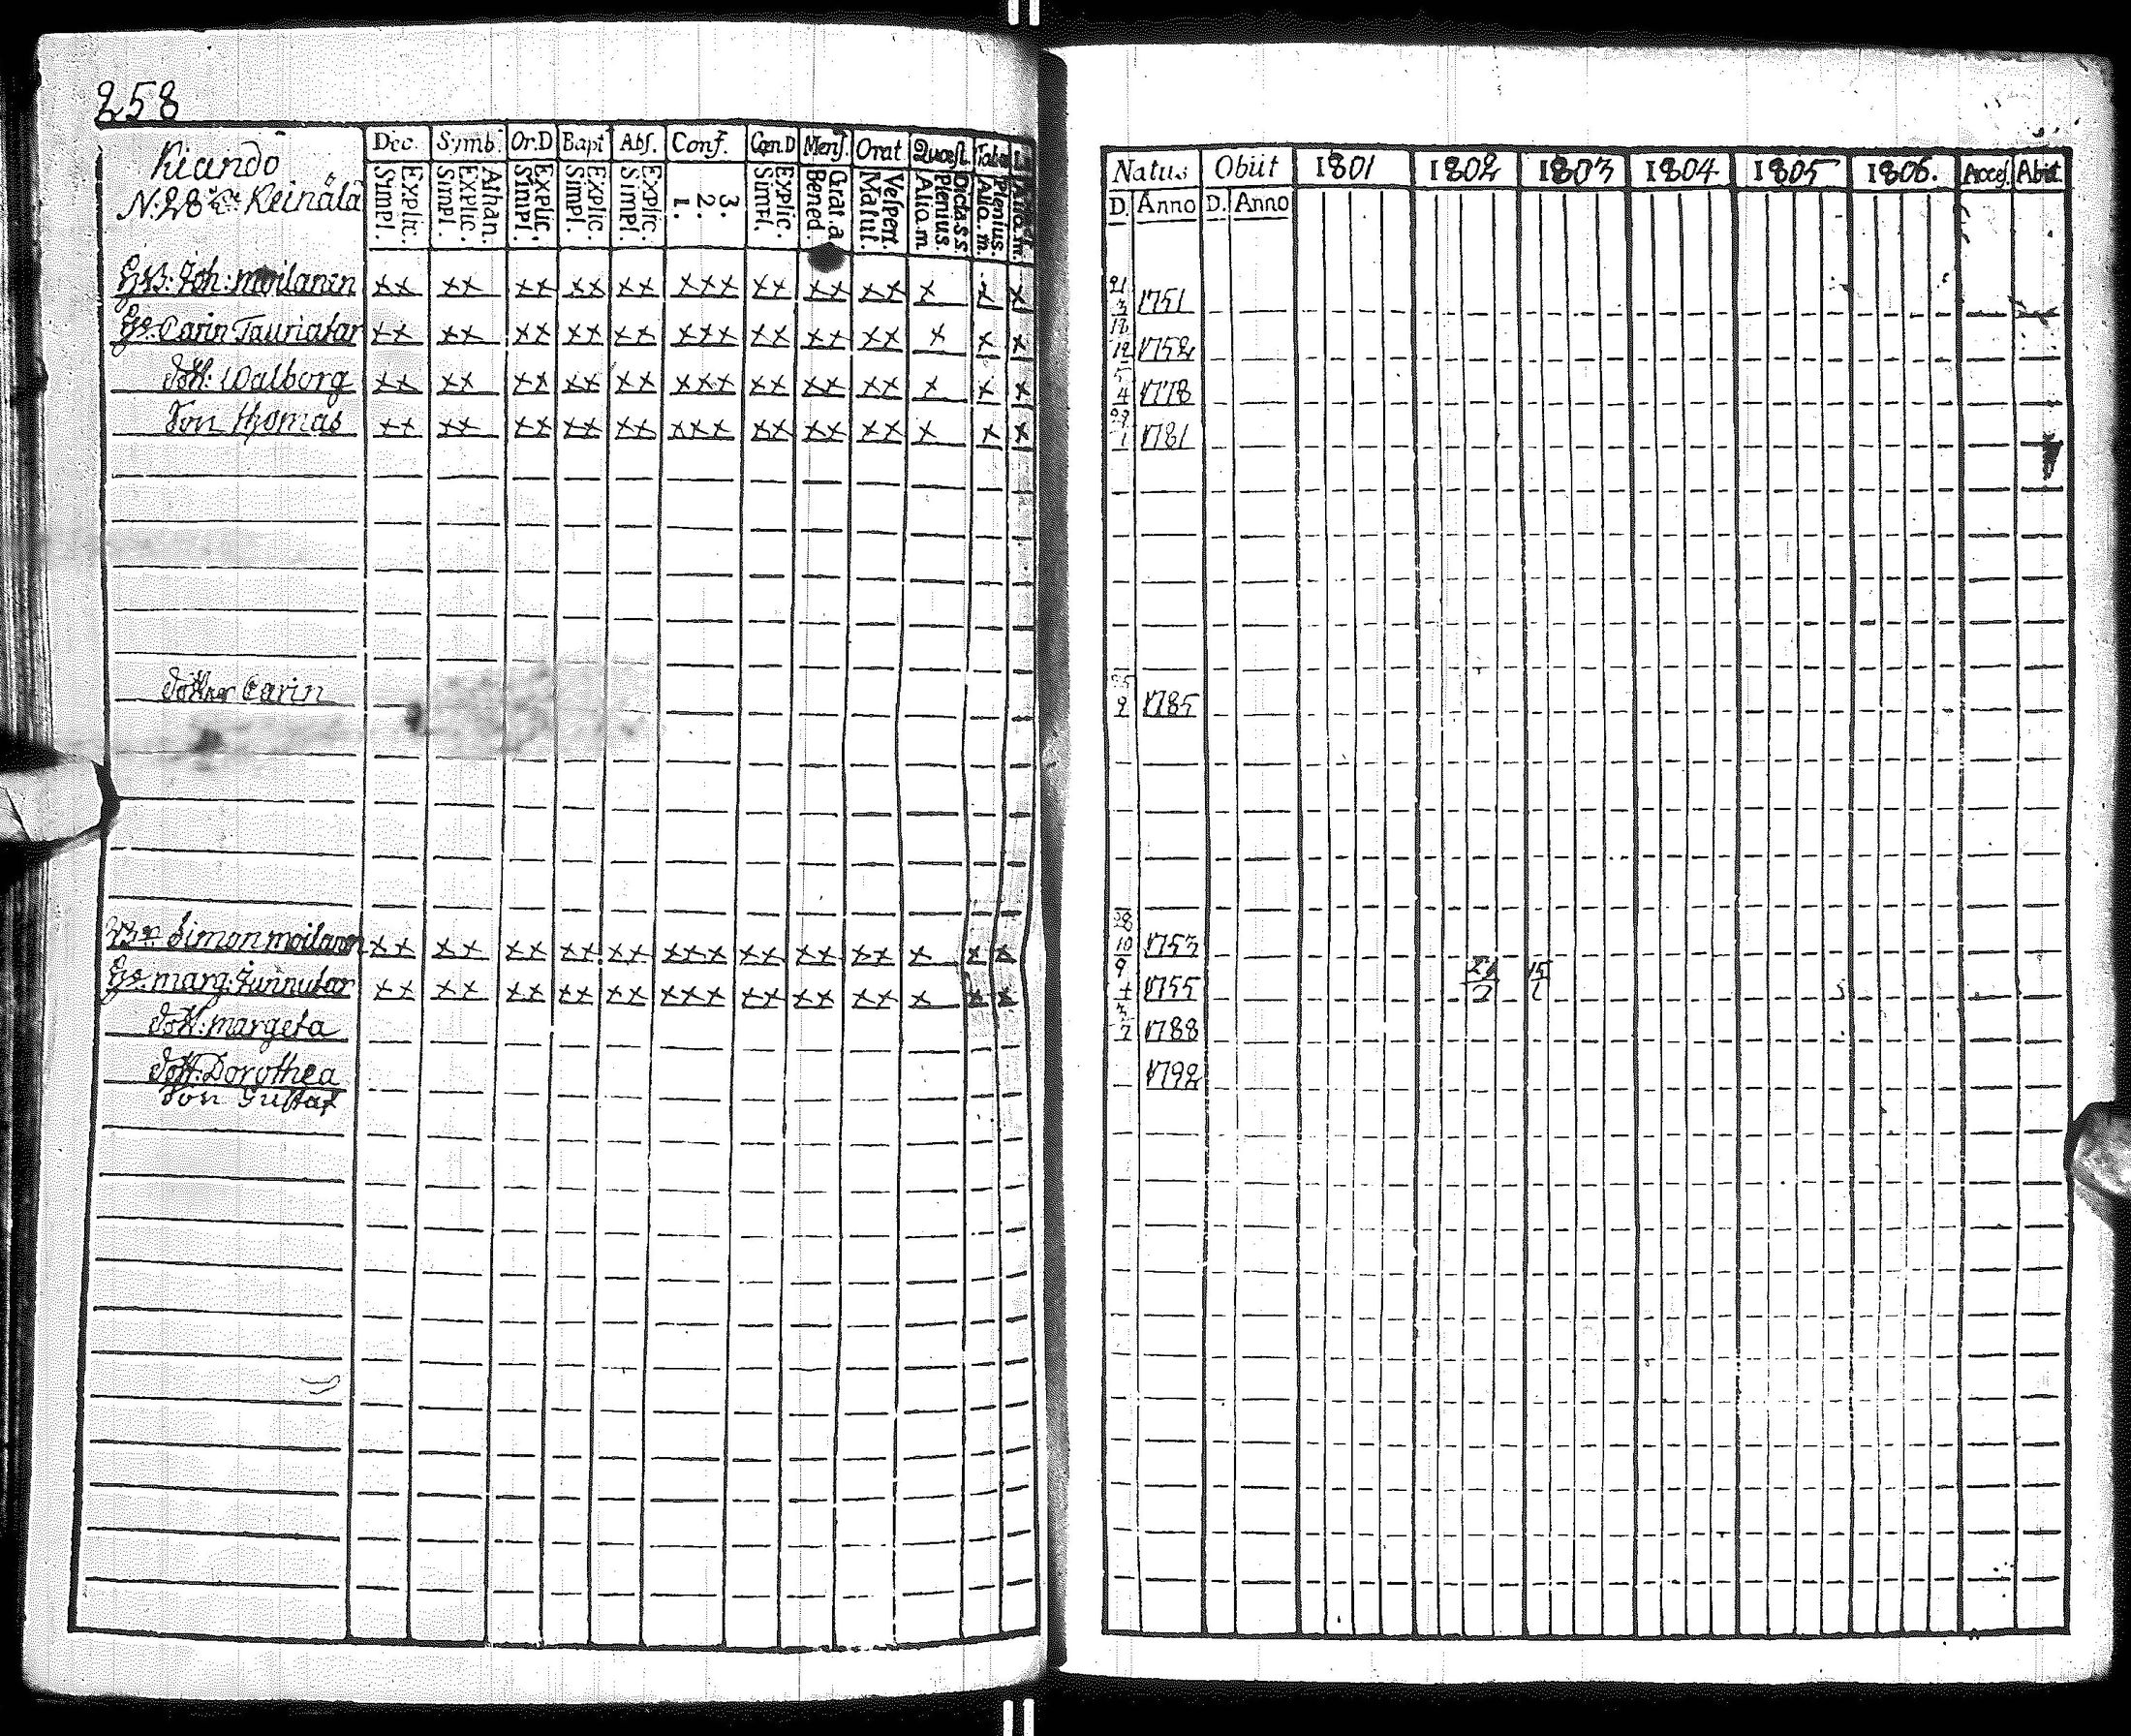 258
Kiando
N: 28 Keinälä
Dec. Symb. Or.D Bapt Abs. Conf. Cœn.D Mens. Orat Quæst. Tab
Explic. Simpl. Athan. Explic. Simpl. Explic. Simpl. Explic. Simpl. Explic. Simpl. 3. 2. 1. Explic. Simpl. Grat. a Bened. Vespert. Matut. Dicta s.s. Plenius. Alio. m. Plenius. Alio. m.
Natus Obiit 1801 1802 1803 1804 1805 1806. Acces. Abiit
D. Anno D. Anno
Joh: Moilanen xx xx xx xx xx xxx xx xx xx x x x 21/3 1751
Carin Tauriatar xx xx xx xx xx xxx xx xx xx x x x 12 1752
Dott: Walborg xx xx xx xx xx xxx xx xx xx x x x 5/4 1778
Son Thomas xx xx xx xx xx xxx xx xx xx x x x 1 1781
Dotter Carin 2 1785
Simon Moilanen xx xx xx xx xx xxx xx xx xx x x x 28/10 1753
Marg: Junnutar xx xx xx xx xx xxx xx xx xx x x x 9 1755 15
Dott: Margeta 7 1788
Dott: Dorothea 1792
Son Gustaf